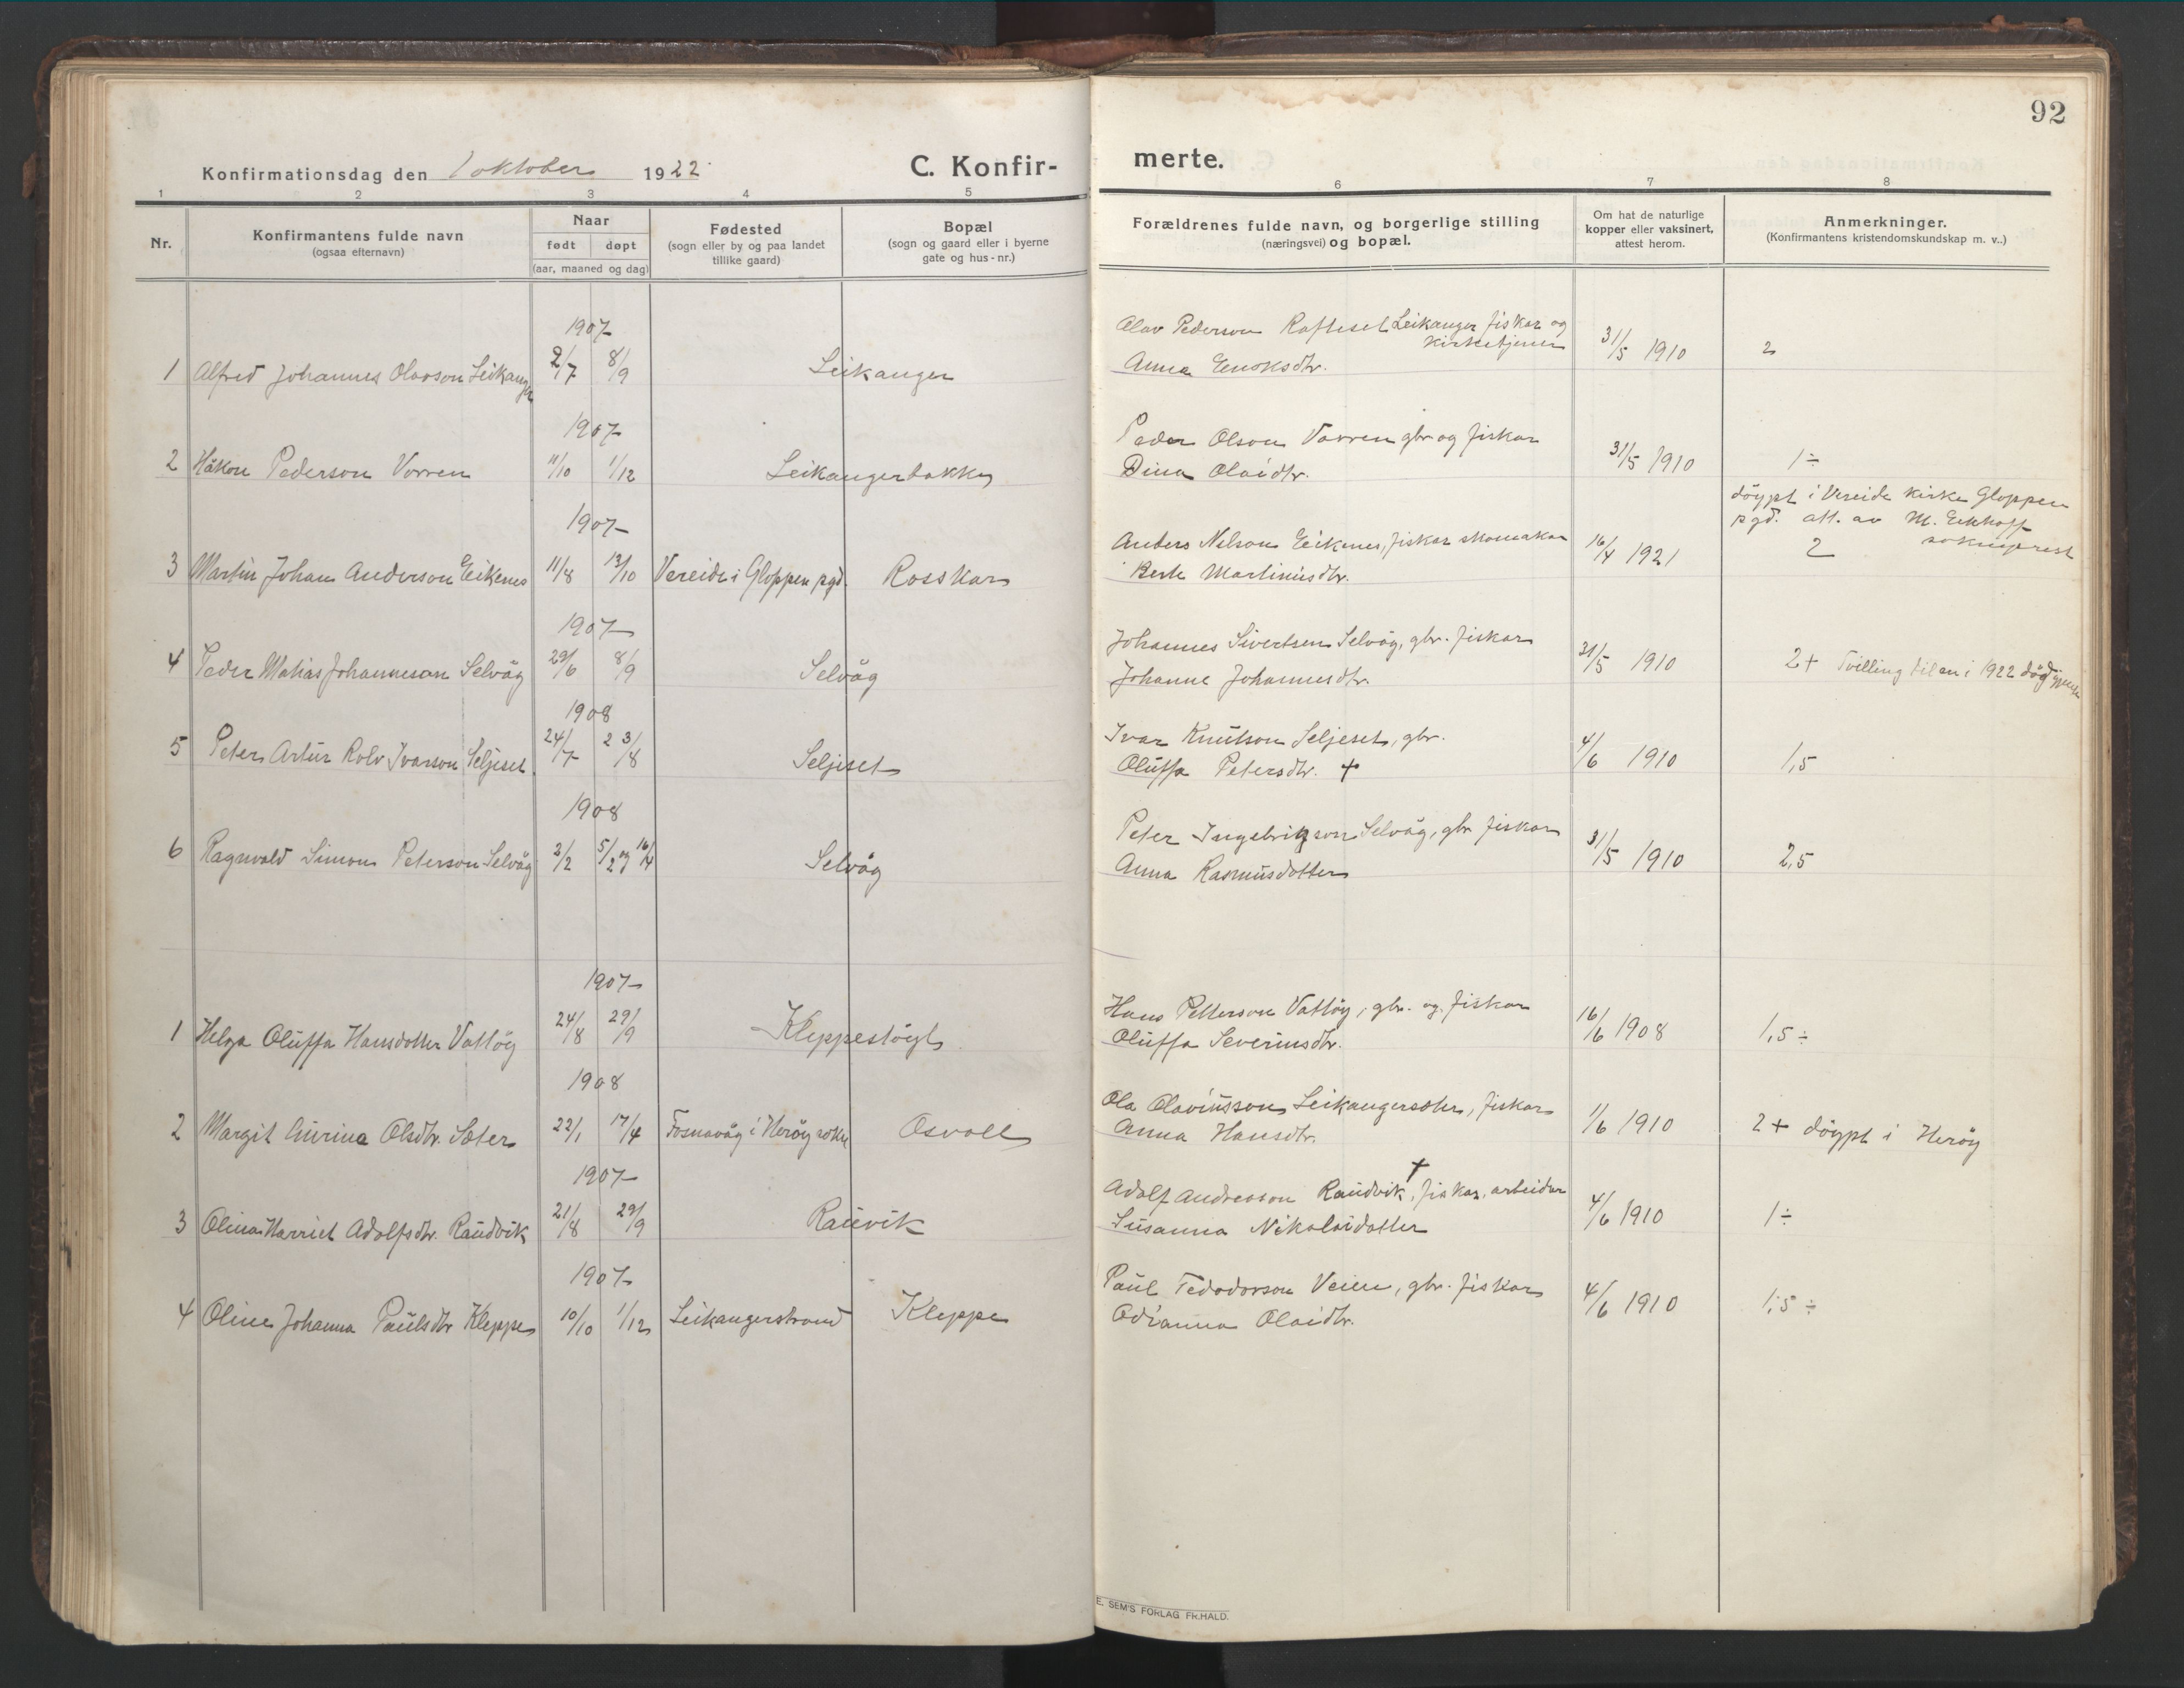 92
Konfirmationsdag den 1 oktober 1922
C. Konfir- merte.
1 2 3 4 5 6 7 8
Nr.
Konfirmantens fulde navn
(ogsaa efternavn)
Naar
født døpt
(aar, maaned og dag)
Fødested
(sogn eller by og paa landet
tillike gaard)
Bopæl
(sogn og gaard eller i byerne
gate og hus-nr.)
Forældrenes fulde navn, og borgerlige stilling
(næringsvei) og bopæl.
Om hat de naturlige
kopper eller vaksinert,
attest herom.
Anmerkninger.
(Konfirmantens kristendomskundskap m. v..)
1907
1 Alfred Johannes Olavson Leikanger 2/7 8/9 Leikanger
Olav Pederson Rafteset Leikanger fiskar og
kirketjenar
Anna Enoksdtr.
31/5 1910 2
1907
2 Håkon Pederson Vorren 11/10 1/12 Leikangerbakke
Peder Olson Vorren gbr og fiskar
Dina Olaidtr.
31/5 1910 1÷
1907
3 Martin Johan Anderson Eikenes 11/8 13/10 Vereide i Gloppen pgd. Rosskar
Anders Nilson Eikenes, fiskar skomakar
Berte Martinusdtr.
16/4 1921
döypt i Vereide kirke Gloppen
pgd. att. av M. Eckhoff
sokneprest
2
1907
4 Peder Matias Johanneson Selvåg 29/6 8/9 Selvåg
Johannes Sivertsen Selvåg, gbr. fiskar
Johanne Johannesdtr.
31/5 1910 2+ Tvilling til en i 1922 död
1908
5 Peter Artur Rolv Ivarson Seljeset 24/7 23/8 Seljeset
Ivar Knutson Seljeset, gbr.
Oluffa Petersdtr. +
4/6 1910 1,5
1908
6 Ragnvald Simon Peterson Selvåg 2/2 5/2 og 16/4 Selvåg
Peter Ingebrigtson Selvåg, gbr fiskar
Anna Rasmusdotter
31/5 1910 2,5
1907
1 Helga Oluffa Hansdotter Vattöy 24/8 29/9 Kleppestöyl
Hans Petterson Vattöy, gbr. og fiskar
Oluffa Severinsdtr.
16/6 1908 1,5÷
1908
2 Margit Gurina Olsdtr. Sæter 22/1 17/4 Fosnavåg i Heröy sokn Osvoll
Ola Olavinsson Leikangersæter, fiskar
Anna Hansdtr.
11/6 1910 2+ döypt i Heröy
1907
3 Olina Harriet Adolfsdtr. Raudvik 21/8 29/9 Rauvik
Adolf Andreasson Raudvik +, fiskar, arbeidar
Susanna Nikolaidotter
4/6 1910 1÷
1907
4 Oline Johanna Paulsdtr Kleppe 10/10 1/12 Leikangerstrand Kleppe
Paul Tedodorson Veien, gbr. fiskar
Odianna Olaidtr.
4/6 1910 1,5÷
E. SEM'S FORLAG FR.HALD.